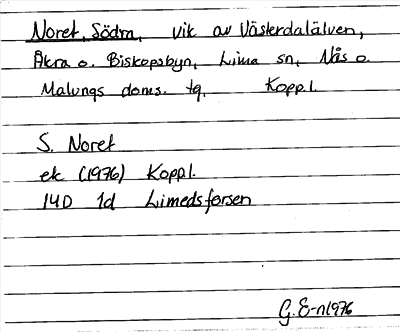 Noret, Södra, vik av Västerdalälven,
Åkra o. Biskopsbyn, Lima sn, Nås o.
Malungs doms. tg. Koppl.
S. Noret
ek (1976) Koppl.
14D 1d Limedsforsen
G.E-n 1976